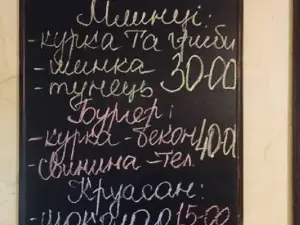 Млинці:
-курка та гриби
-шинка 30-00
-тунець
Бургер:
-курка-бекон 40-0
-свинина-тел.
Круасан:
-шоколад 15-00